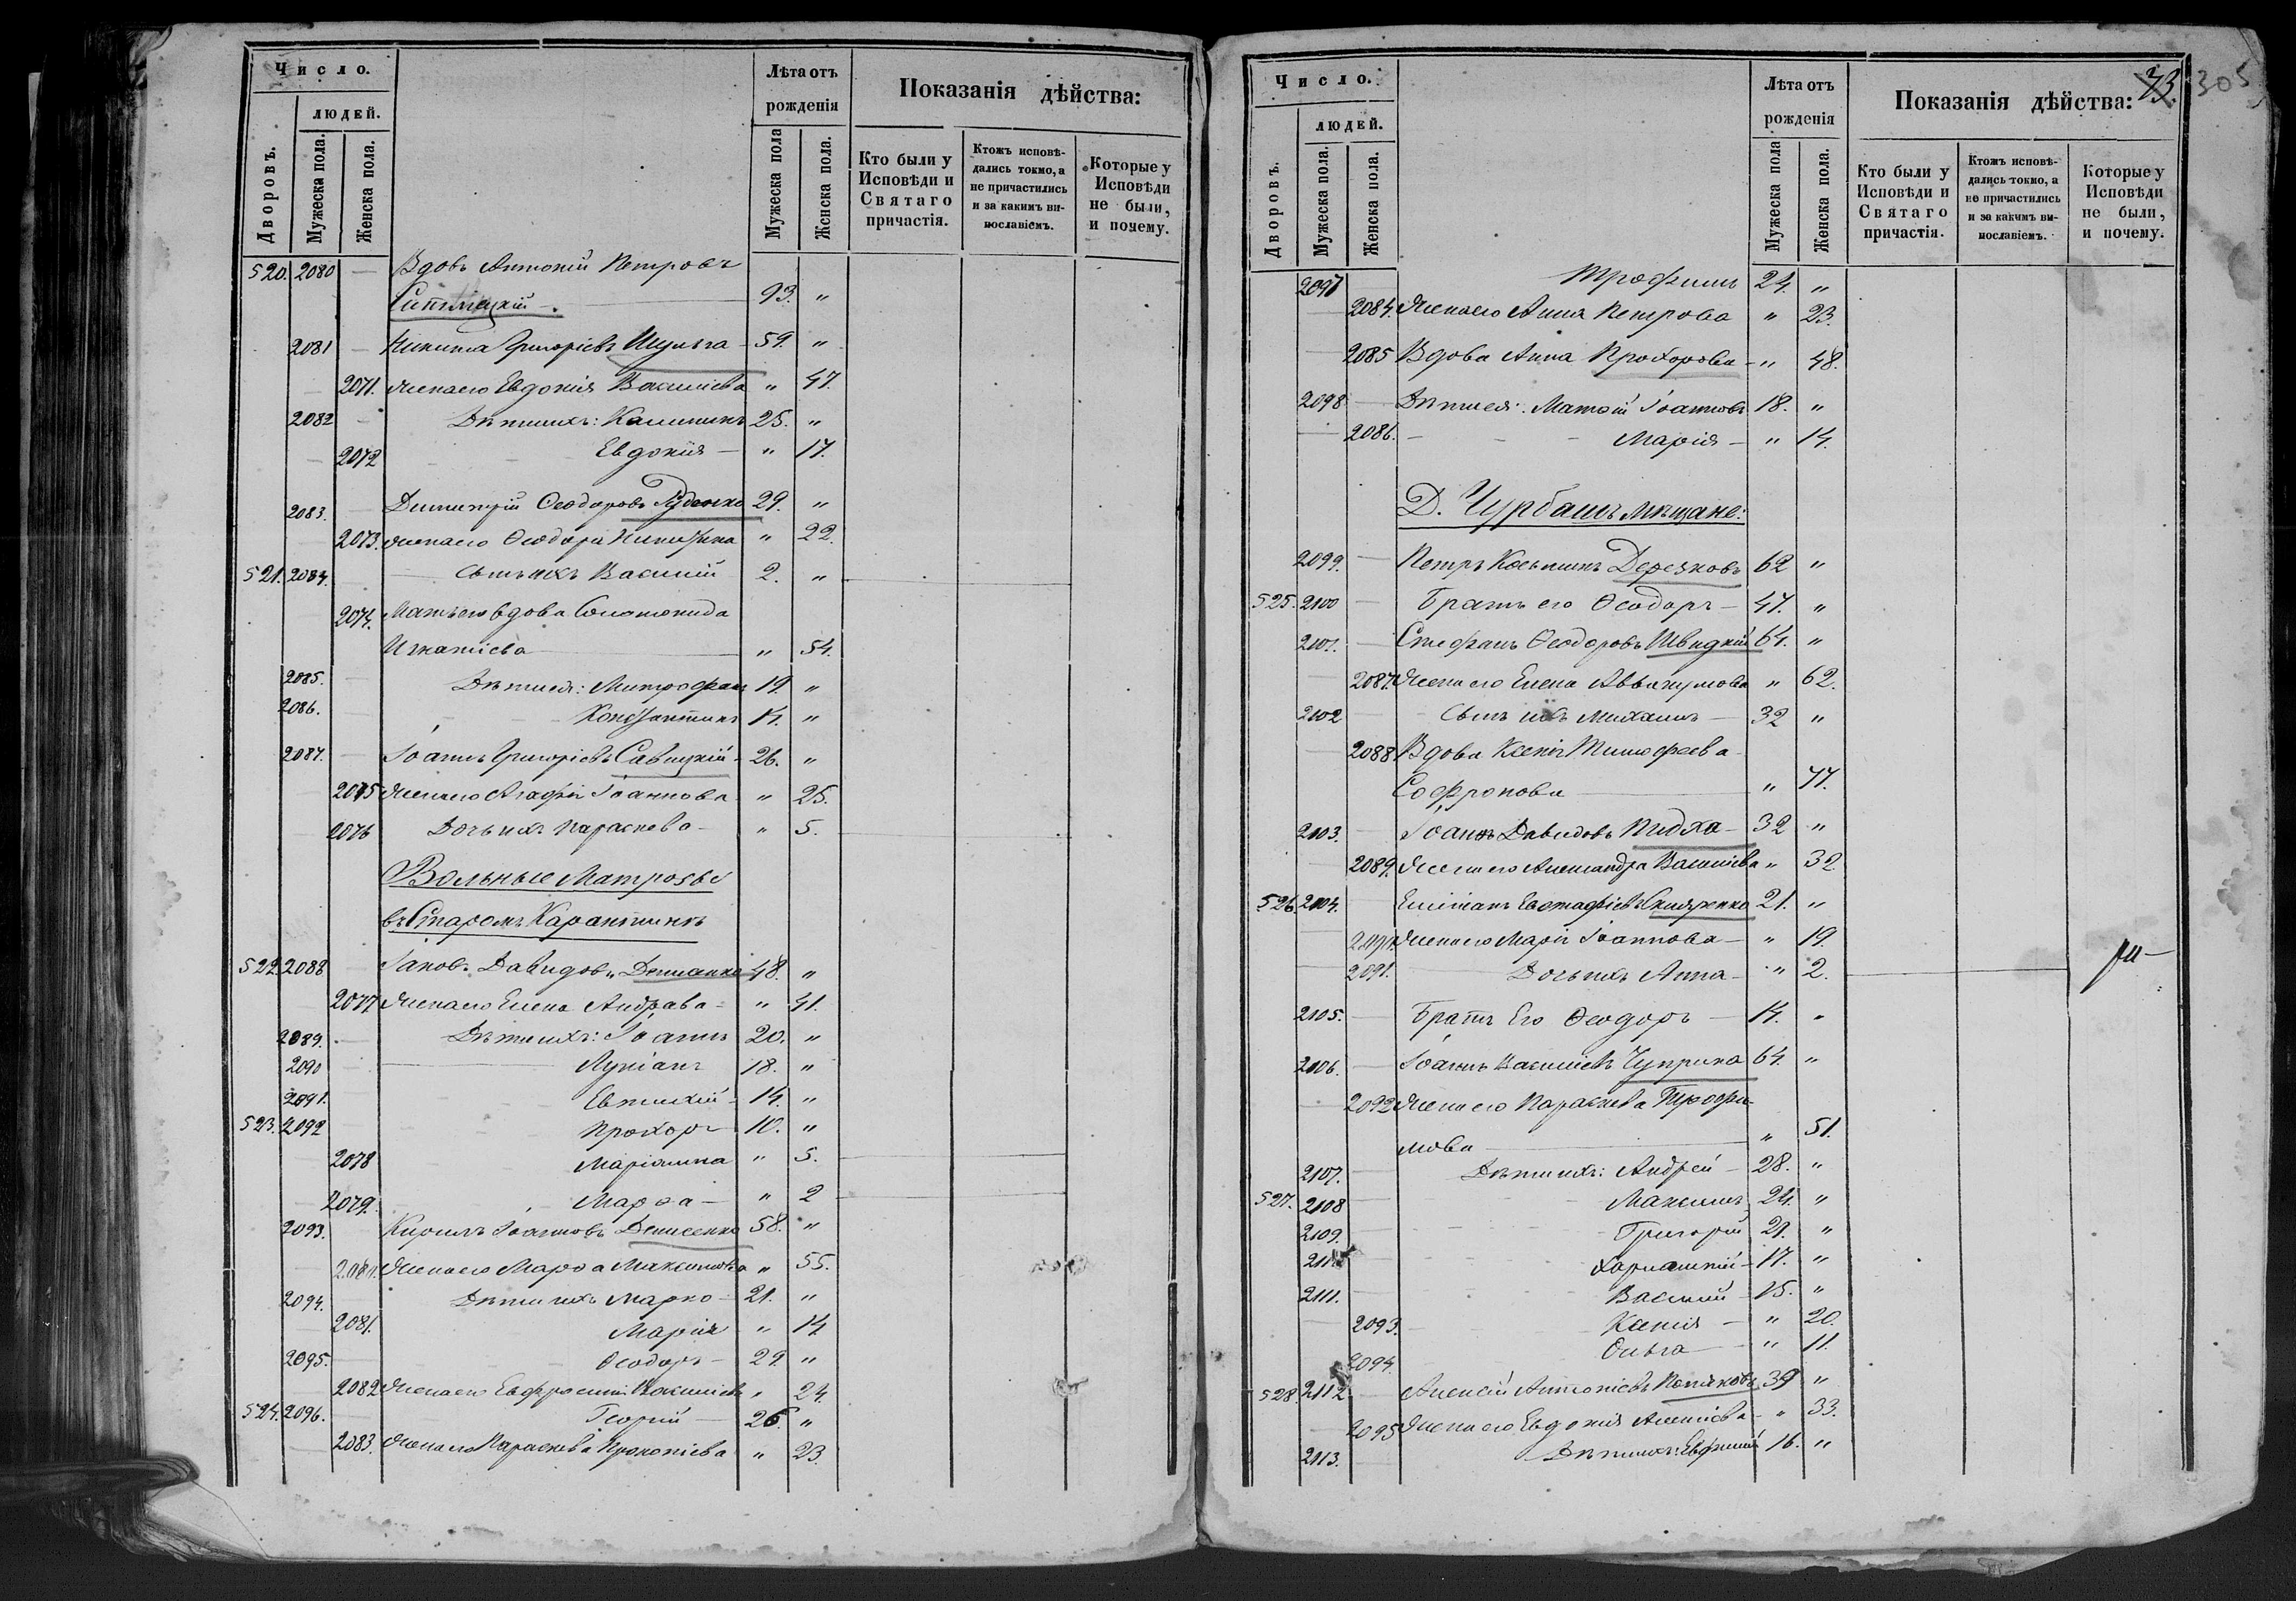 Число.
людей.
Дворовъ.
Мужеска пола.
Женска пола.
Лѣта отъ
рожденія
Мужеска пола
Женска пола.
Показанія дѣйства:
Кто были у
Исповѣди и
Святаго
причастія.
Ктожъ исповѣ-
дались токмо, а
не причастились
и за какимъ ви-
нословіемъ.
Которые у
Исповѣди
не были,
и почему.
520. 2080 — Вдовъ Антоній Петровъ
93. "
2081 — Никита Григоріевъ Шульга — 59. "
2071. Жена его Евдокія Василіева " 47.
2082 — Дѣти ихъ: Калиникъ 25. "
2072 Евдокія — " 17.
2083. Димитрій Ѳеодоровъ Руденко 29. "
2073. Жена его Ѳеодора Никитина " 22.
521. 2084. Сынъ ихъ Василій 2. "
2074. Мать его вдова Соломонида
Игнатіева " 54.
2085. — Дѣти ея: Митрофанъ 19. "
2086. Константинъ 14. "
2087. — Іоаннъ Григоріевъ Савицкій — 26. "
2075 Жена его Агафія Іоаннова " 25.
2076 Дочь ихъ Параскева — " 5.
Вольные Матросы
въ Старомъ Карантинѣ
522. 2088 Іаковъ Давидовъ Демианко 48. "
2077 Жена его Елена — " 41.
2089. — Дѣти ихъ: Іоаннъ 20. "
2090 Лукіанъ 18. "
2091. Евтихій — 14. "
523. 2092 Прохоръ — 10. "
2078 Маріамна " 5.
2079. Марѳа — " 2
2093. Кирилъ Іоанновъ Денисенко 58. "
2080. Жена его Марѳа Максимова " 55.
2094. Дѣти ихъ Марко — 21. "
2081. Марія " 14
2095. Ѳеодоръ — 29. "
2082 Жена его Евфросинія Василіева " 24.
524. 2096. Георгій — 26. "
2083. Жена его Параскева Прокопіева " 23.
73. 305
Число.
людей.
Дворовъ.
Мужеска пола.
Женска пола.
Лѣта отъ
рожденія
Мужеска пола
Женска пола.
Показанія дѣйства:
Кто были у
Исповѣди и
Святаго
причастія.
Ктожъ исповѣ-
дались токмо, а
не причастились
и за какимъ ви-
нословіемъ.
Которые у
Исповѣди
не были,
и почему.
2097 Трофимъ 24. "
2084. Жена его Анна Петрова " 23.
2085 Вдова Анна Прохорова — " 48.
2098 Дѣти ея: Матѳій Іоанновъ 18. "
2086. Марія — " 14.
Д. Чурбашъ мѣщане:
2099. — Петръ Косьминъ Дерезковъ 62 "
525. 2100 — Братъ его Ѳеодоръ — 47. "
2101. — Стефанъ Ѳеодоровъ Швидкій 64. "
2087. Жена его Елена Аввакумова " 62.
2102 Сынъ ихъ Михаилъ — 32 "
2088 Вдова Ксенія Тимофеева
Софронова " 77.
2103. — Іоаннъ Давидовъ Пидха — 32 "
2089. Жена его Александра Василіева " 32.
526. 2104. Евстафіевъ Скляренко 21. "
2090. Жена его Марія Іоаннова — " 19.
2091. Дочь ихъ Анна — " 2.
2105. — Братъ Его Ѳеодоръ — 14. "
2106. — Іоаннъ Василіевъ Чуприна 64. "
2092 Жена его Параскева Трофи-
мова " 51.
2107. — Дѣти ихъ: Андрей — 28. "
527. 2108 Максимъ 24. "
2109. Григорій 21. "
Харлампій — 17. "
2111. Василій — 15. "
2093. Ксенія — " 20.
2094. Ольга — " 11.
528. 2112 Алексій Антоніевъ 39 "
2095 Жена его Евдокія Алексіева — " 33.
2113. Дѣти ихъ: Евфимій 16. "